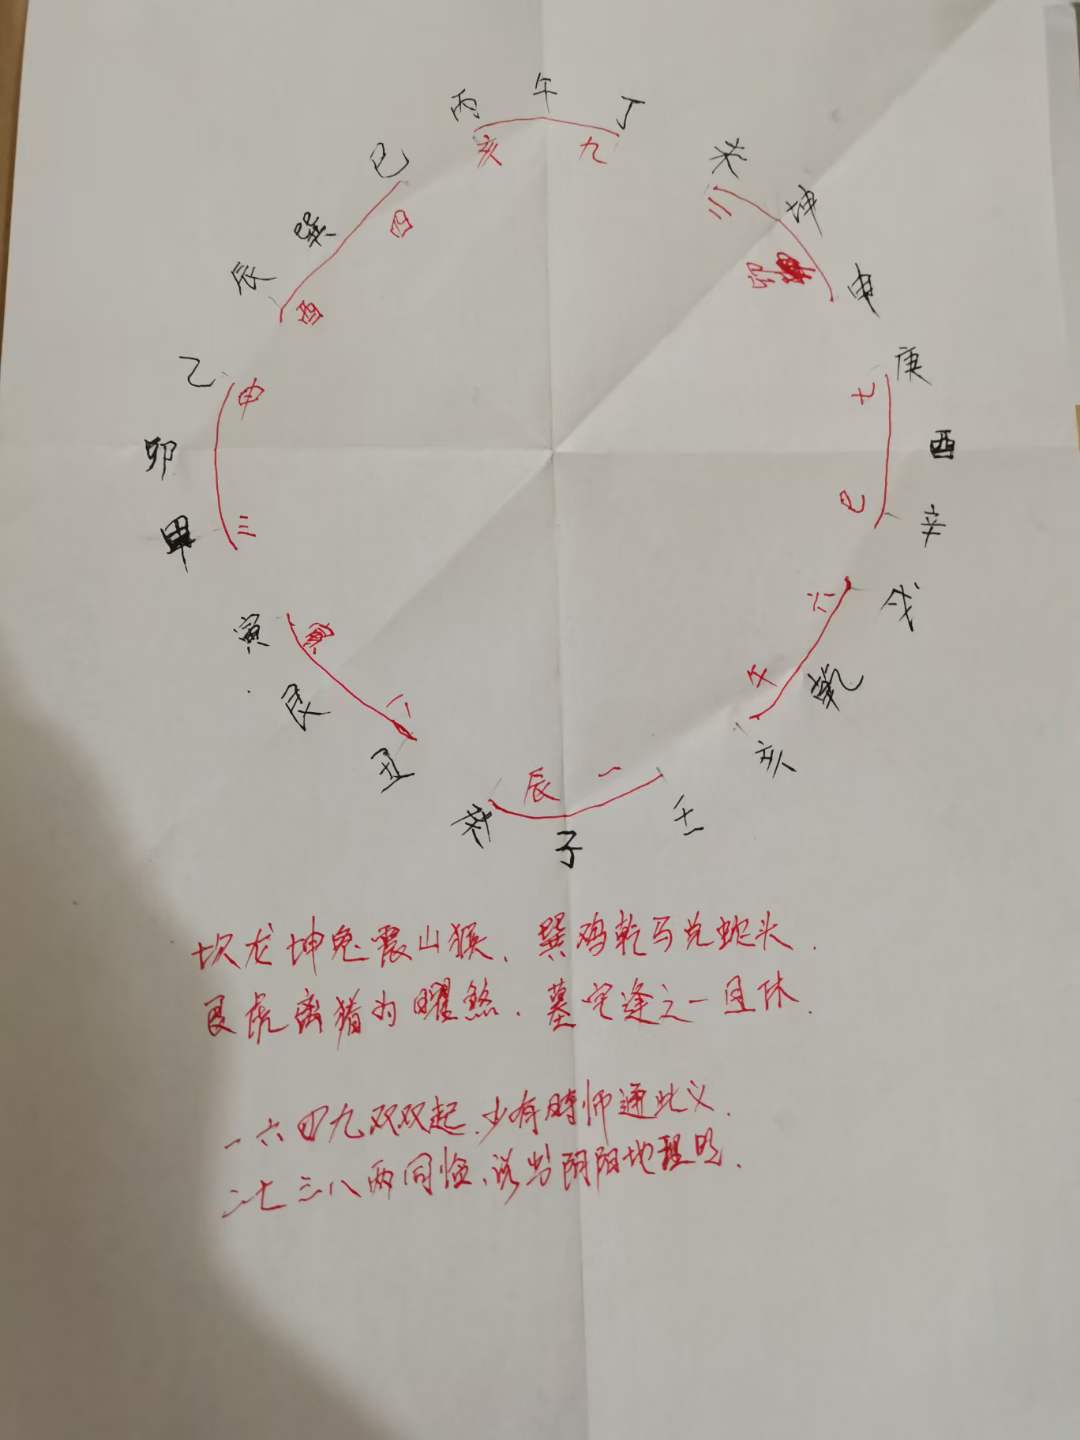 丙 午 丁
亥 九
巳 未
四 二 坤
巽
辰 卯 申
酉
乙 申 七 庚
卯 酉
甲 三 巳 辛
寅 寅 六 戌
艮 午 乾
丑 八 亥
癸 辰 一 壬
子
坎龙坤兔震山猴、巽鸡乾马兑蛇头.
艮虎离猪为曜煞.墓宅逢之一旦休.
一六四九双双起.少有时师通此义.
二七三八两同临、说出阴阳地理明.